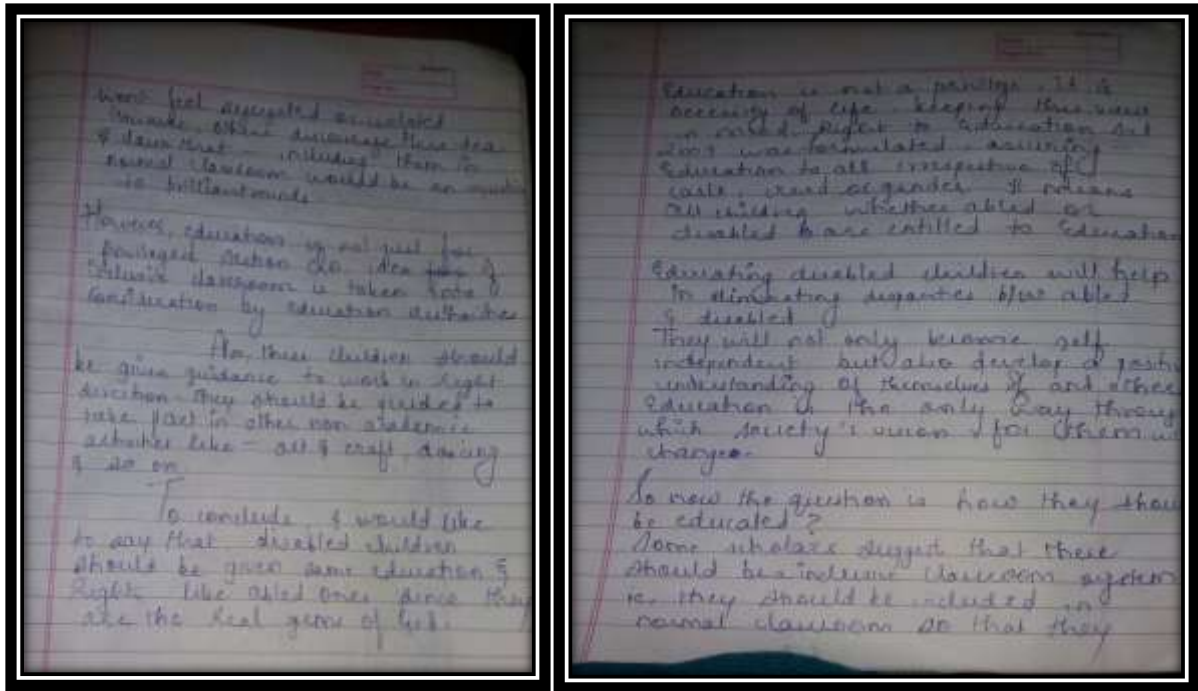 wont feel segregated or isolated
inwards. Others discourage this idea
& claim that - including them in
normal classroom would be an
to brilliant minds
However, education is not just for
privileged section so, idea of
inclusive classroom is taken into
consideration by education authorities
Also, these children should
be given guidance to work in right
direction. They should be guided to
take part in other non academic
activities like - art & craft, dancing
& so on
To conclude, I would like
to say that disabled children
should be given same education &
Right like abled ones since they
are the real gems of God.
Education is not a . It is
necessity of life. keeping this view
in mind Right to Education Act
2009 was formulated assuring
Education to all irrespective of
caste, creed or gender. It means
all whether abled or
disabled are entitled to Education
Educating disabled children will help
in b/w abled
& disabled
They will not only become self
independent but also develop a positiv
understanding of themselves and other
Education is the only way throug
which society's vision for them w
change.
So now the question is how they shou
be educated?
Some scholars suggest that there
should be inclusive classroom system
ie. they should be included in
normal classroom so that they